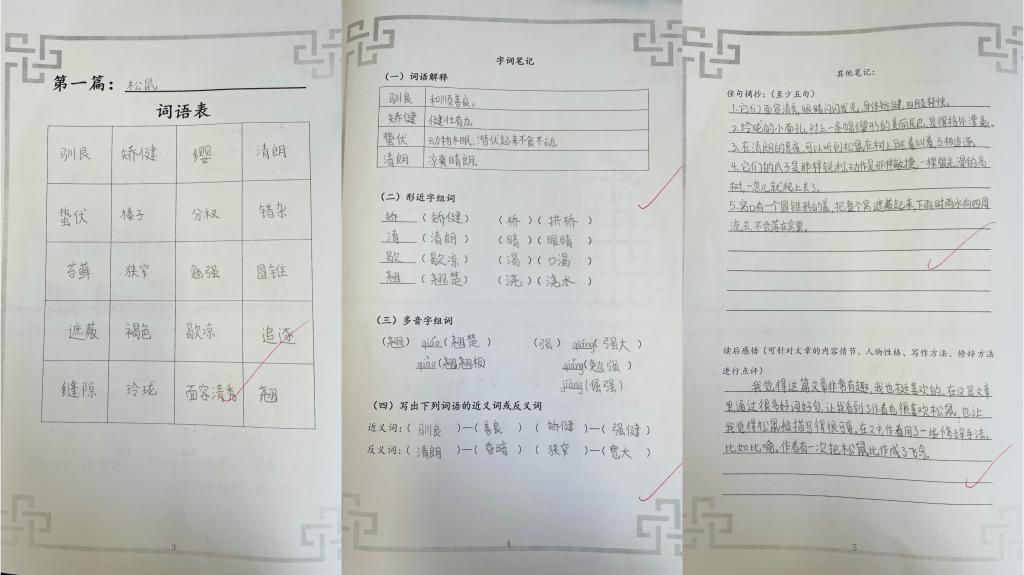 第一篇：松鼠
词语表
驯良 矫健 缨 清朗
蛰伏 榛子 分杈 错杂
苔藓 狭窄 勉强 圆锥
遮蔽 褐色 歇凉 追逐
缝隙 玲珑 面容清秀 翘
3
字词笔记
（一）词语解释
驯良 和顺善良。
矫健 健壮有力。
蛰伏 动物冬眠，潜伏起来不食不动。
清朗 凉爽晴朗。
（二）形近字组词
矫（矫健）（桥）（拱桥）
清（清朗）（睛）（眼睛）
歇（歇凉）（渴）（口渴）
翘（翘楚）（浇）（浇水）
（三）多音字组词
（翘）qiáo（翘楚）（强）qiáng（强大）
qiào（翘翘板） qiǎng（勉强）
jiàng（倔强）
（四）写出下列词语的近义词或反义词
近义词：（驯良）—（善良）（矫健）—（强健）
反义词：（清朗）—（昏暗）（狭窄）—（宽大）
4
其他笔记：
佳句摘抄：（至少五句）
1.它们面容清秀，眼睛闪闪发光，身体矫健，四肢轻快。
2.玲珑的小面孔，衬上一条帽缨形的美丽尾巴，显得格外漂亮。
3.在清朗的夏夜，可以听到松鼠在树上跳着叫着，互相追逐。
4.它们的爪子是那样锐利，动作是那样敏捷，一棵很光滑的高
树，一忽儿就爬上去了。
5.窝口有一个圆锥形的盖，把整个窝遮蔽起来，下雨时雨水向四周
流去，不会落在窝里。
读后感悟（可针对文章的内容情节、人物性格、写作方法、修辞方法
进行点评）
我觉得这篇文章非常有趣，我也挺喜欢的。在这篇文章
里通过很多好词好句，让我看到了作者也很喜欢松鼠，也让
我觉得松鼠被描写得很可爱。在文中作者用了一些修辞手法，
比如比喻。作者有一次把松鼠比作成了飞鸟。
5